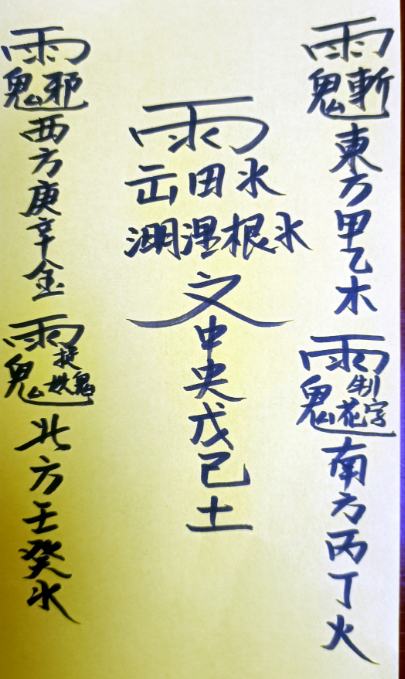 雨
鬼斬
東方甲乙木
雨
鬼制
南方丙丁火
雨
田水
根水
中央戊己土
雨
鬼邪
西方庚辛金
雨
鬼
北方壬癸水